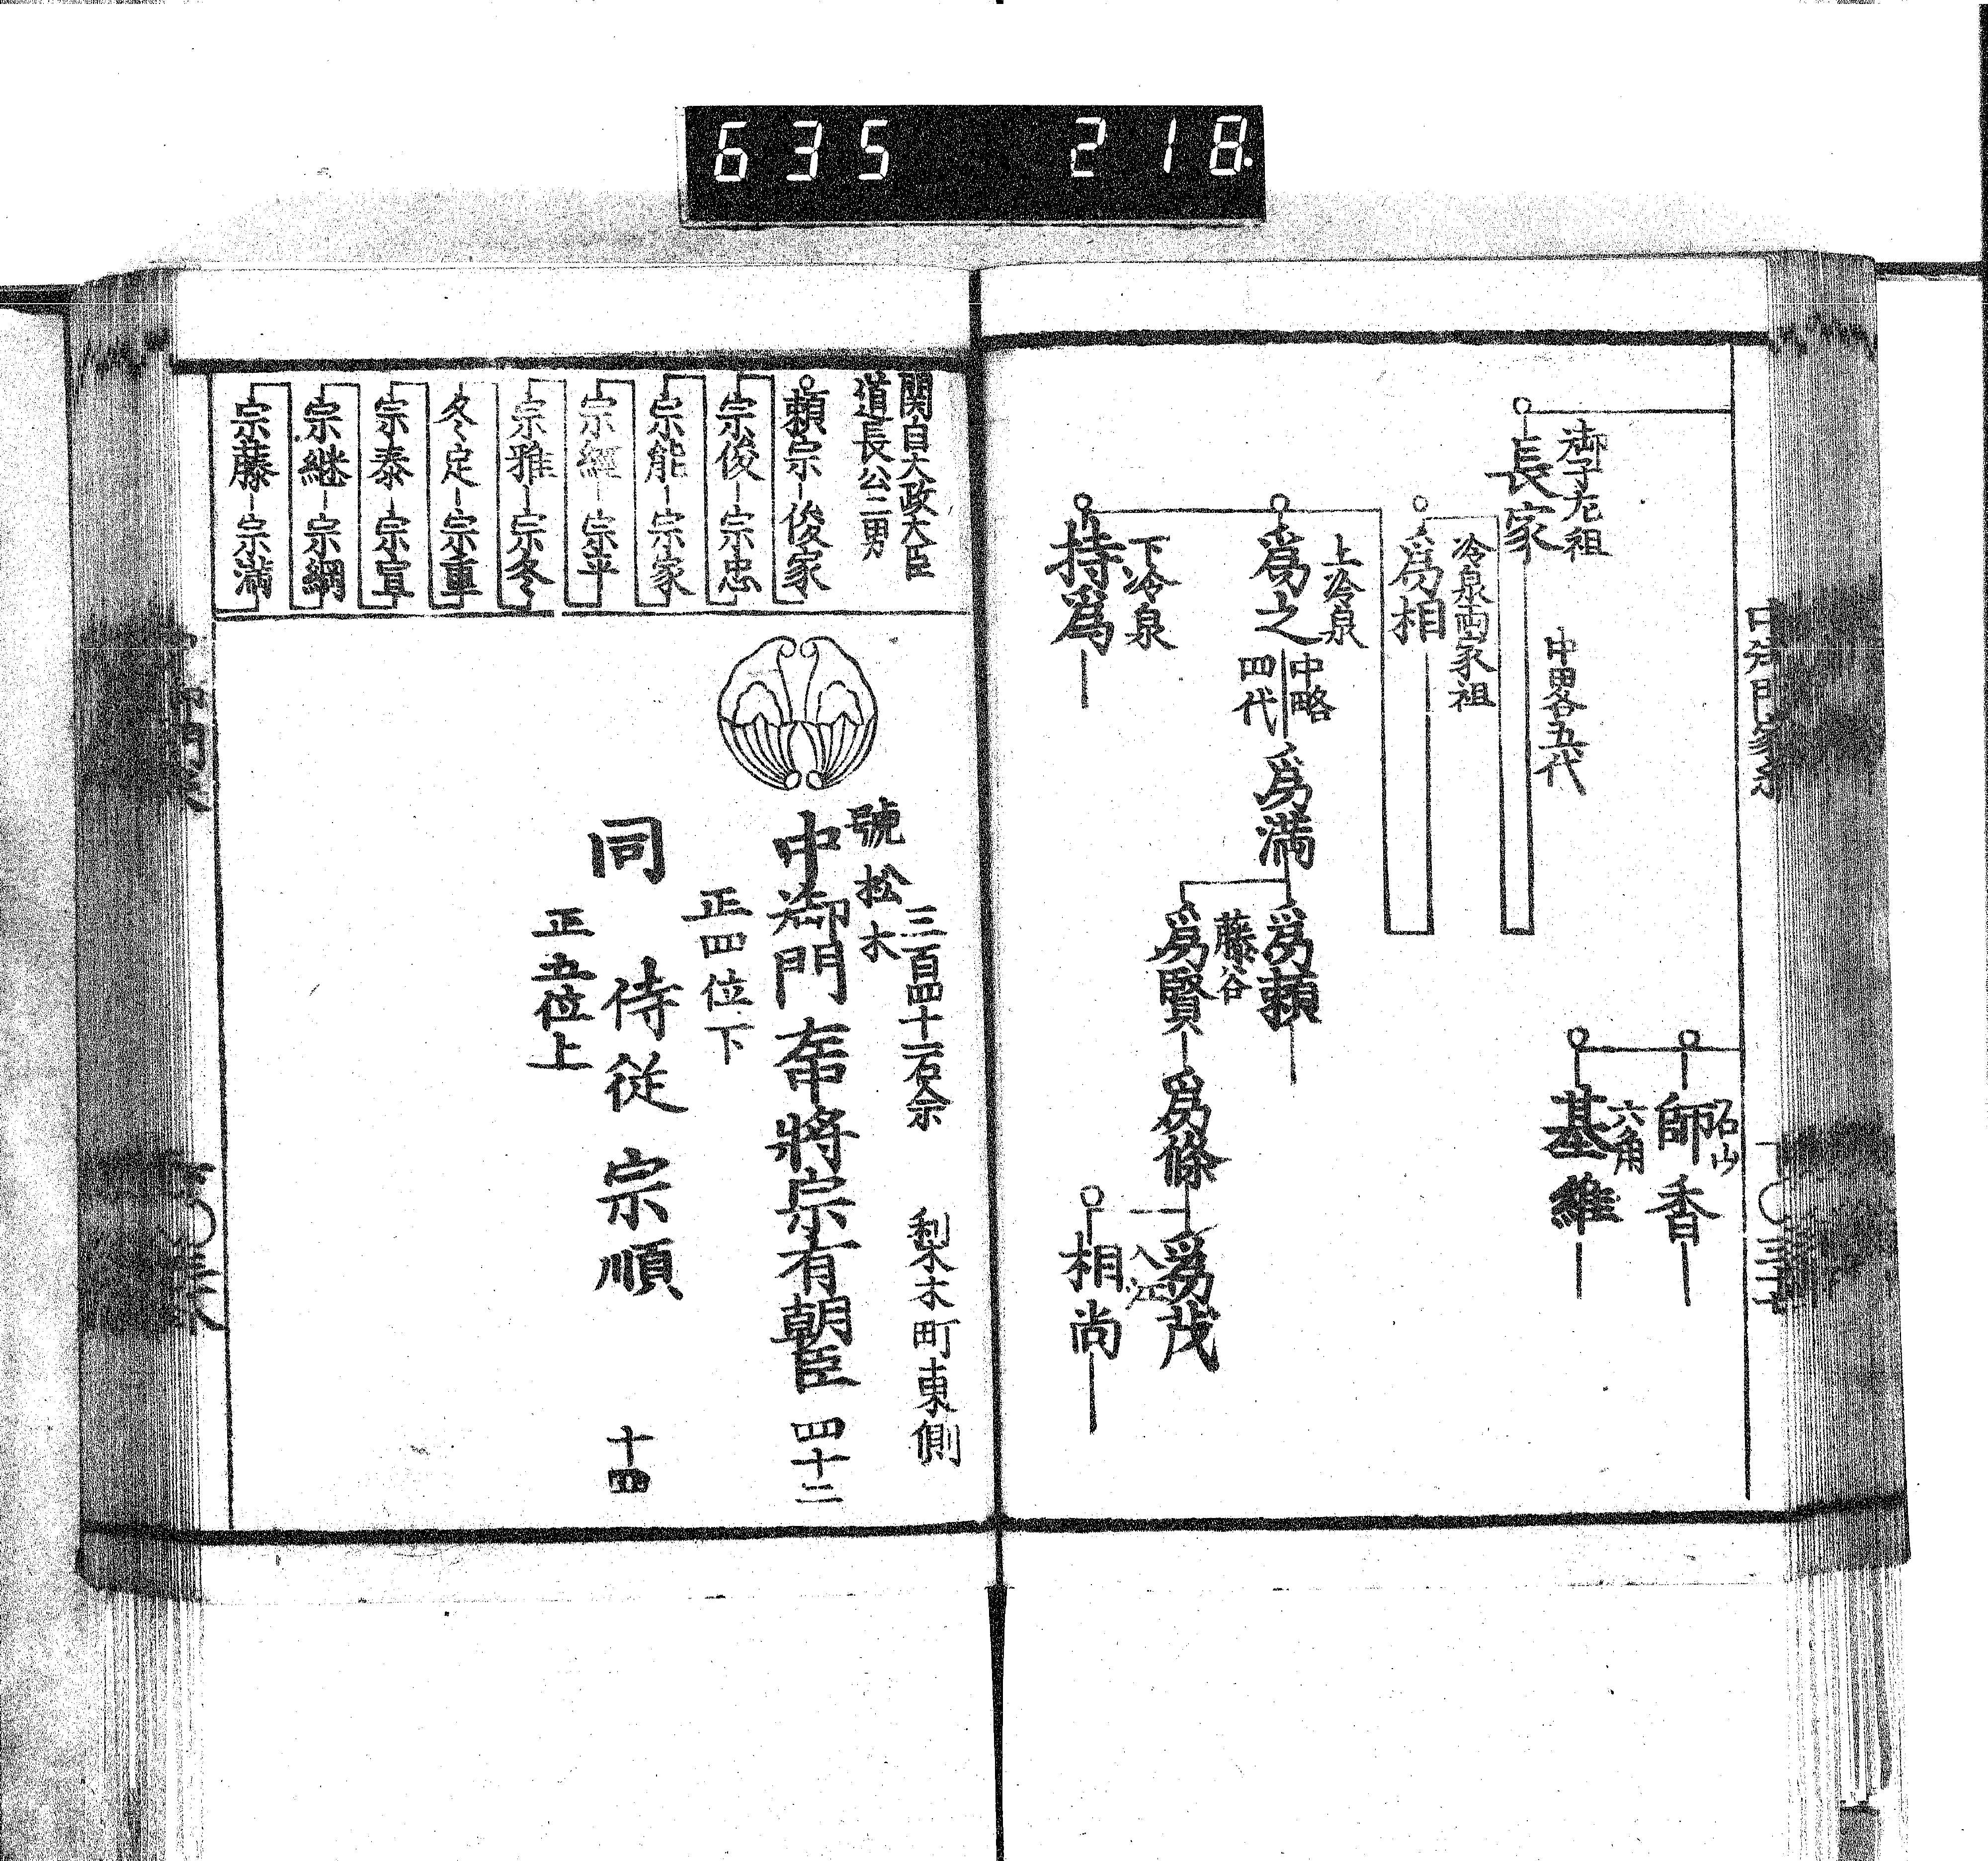 635 218.
石山
師香
六角
基維
御子左祖
長家
中畧五代
冷泉両家祖
爲相
上冷泉
爲之
中略
四代
爲満
爲頼
藤谷
爲賢
爲條
爲茂
入江
相尚
下冷泉
持爲
関白太政大臣
道長公二男
頼宗 俊家
宗俊 宗忠
宗能 宗家
宗經 宗平
宗雅 宗冬
冬定 宗重
宗泰 宗宣
宗継 宗綱
宗藤 宗満
三百四十一石余 梨木町東側
號松木
中御門 中將宗有朝臣 四十二
正四位下
同 侍従 宗順 十四
正五位上